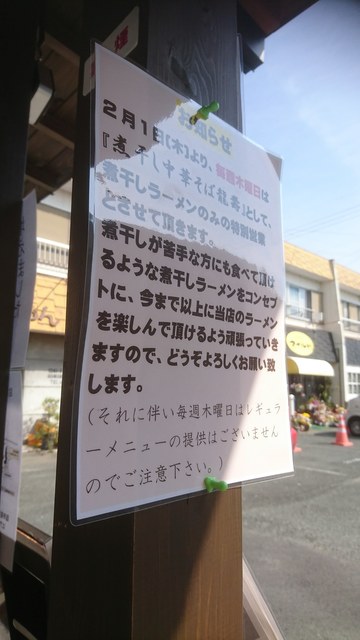 お知らせ
2月1日[木]より、毎週木曜日は
『煮干し中華そば龍壽』として、
煮干しラーメンのみの特別営業
とさせて頂きます。
煮干しが苦手な方にも食べて頂け
るような煮干しラーメンをコンセプ
トに、今まで以上に当店のラーメン
を楽しんで頂けるよう頑張っていき
ますので、どうぞよろしくお願い致
します。
(それに伴い毎週木曜日はレギュラ
ーメニューの提供はございません
のでご注意下さい。)